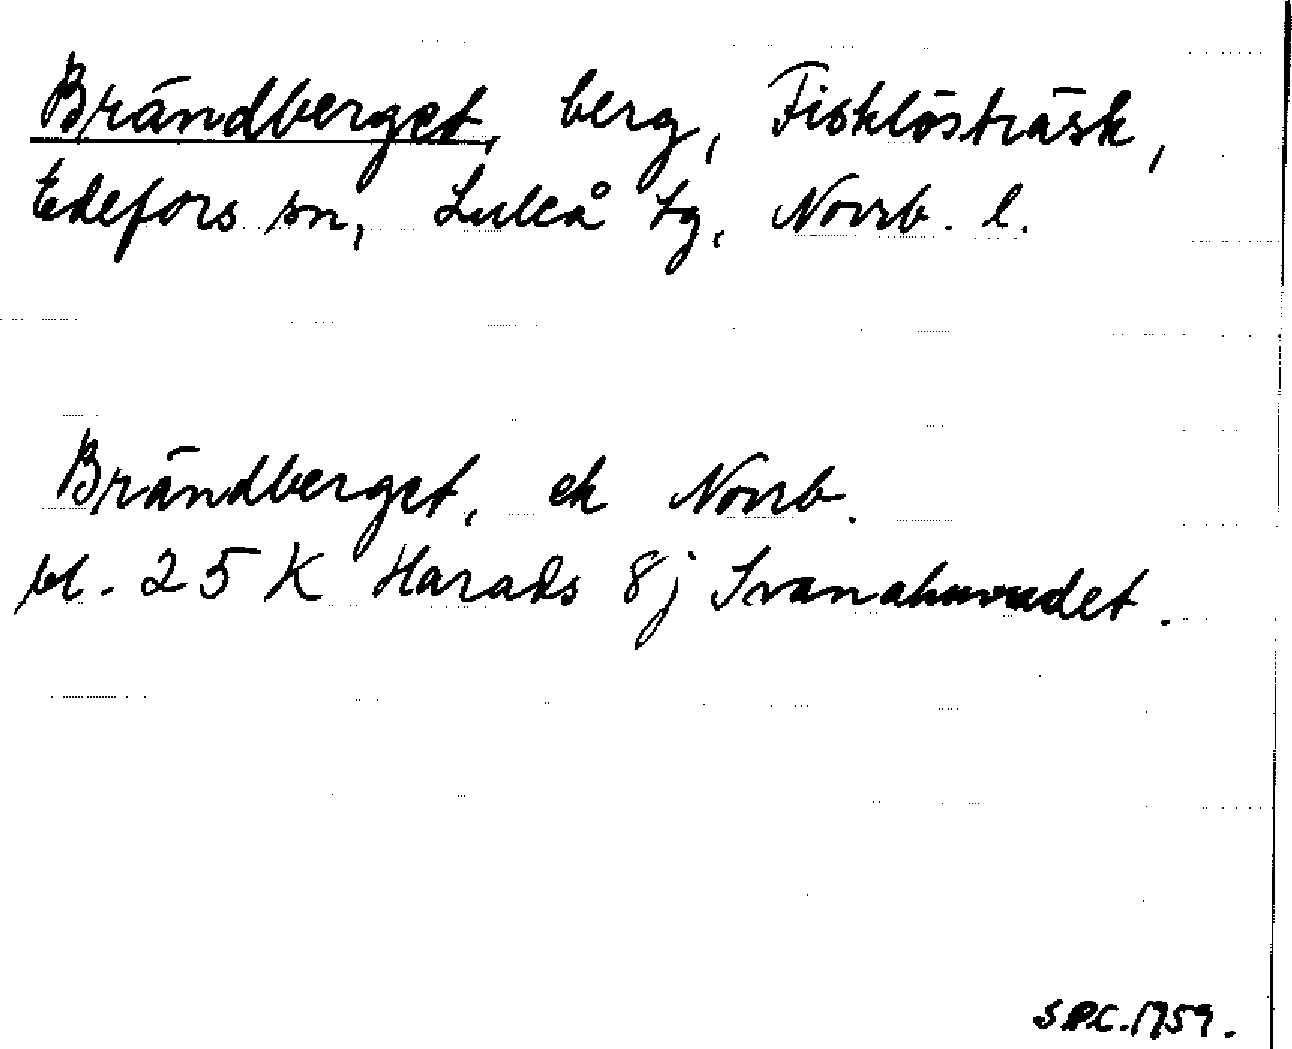 Brändberget, berg, Fisklösträsk,
Edefors sn, Luleå tg, Norrb. l.
Brändberget, ek Norrb.
bl. 25 K Harads 8j Svanahuvudet.
S.P.C. 1959.